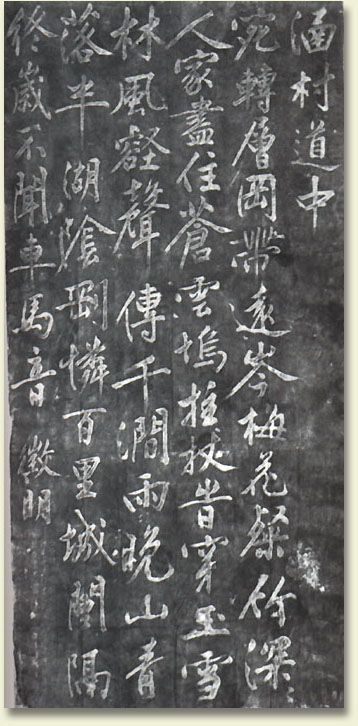 涵村道中
宛轉層岡帶遠岑梅花粲〻竹深〻
人家盡住蒼雲塢拄杖旹穿玉雪
林風壑聲傳千澗雨晚山青
落半湖陰剛憐百里城闉隔
終歲不聞車馬音 徵明